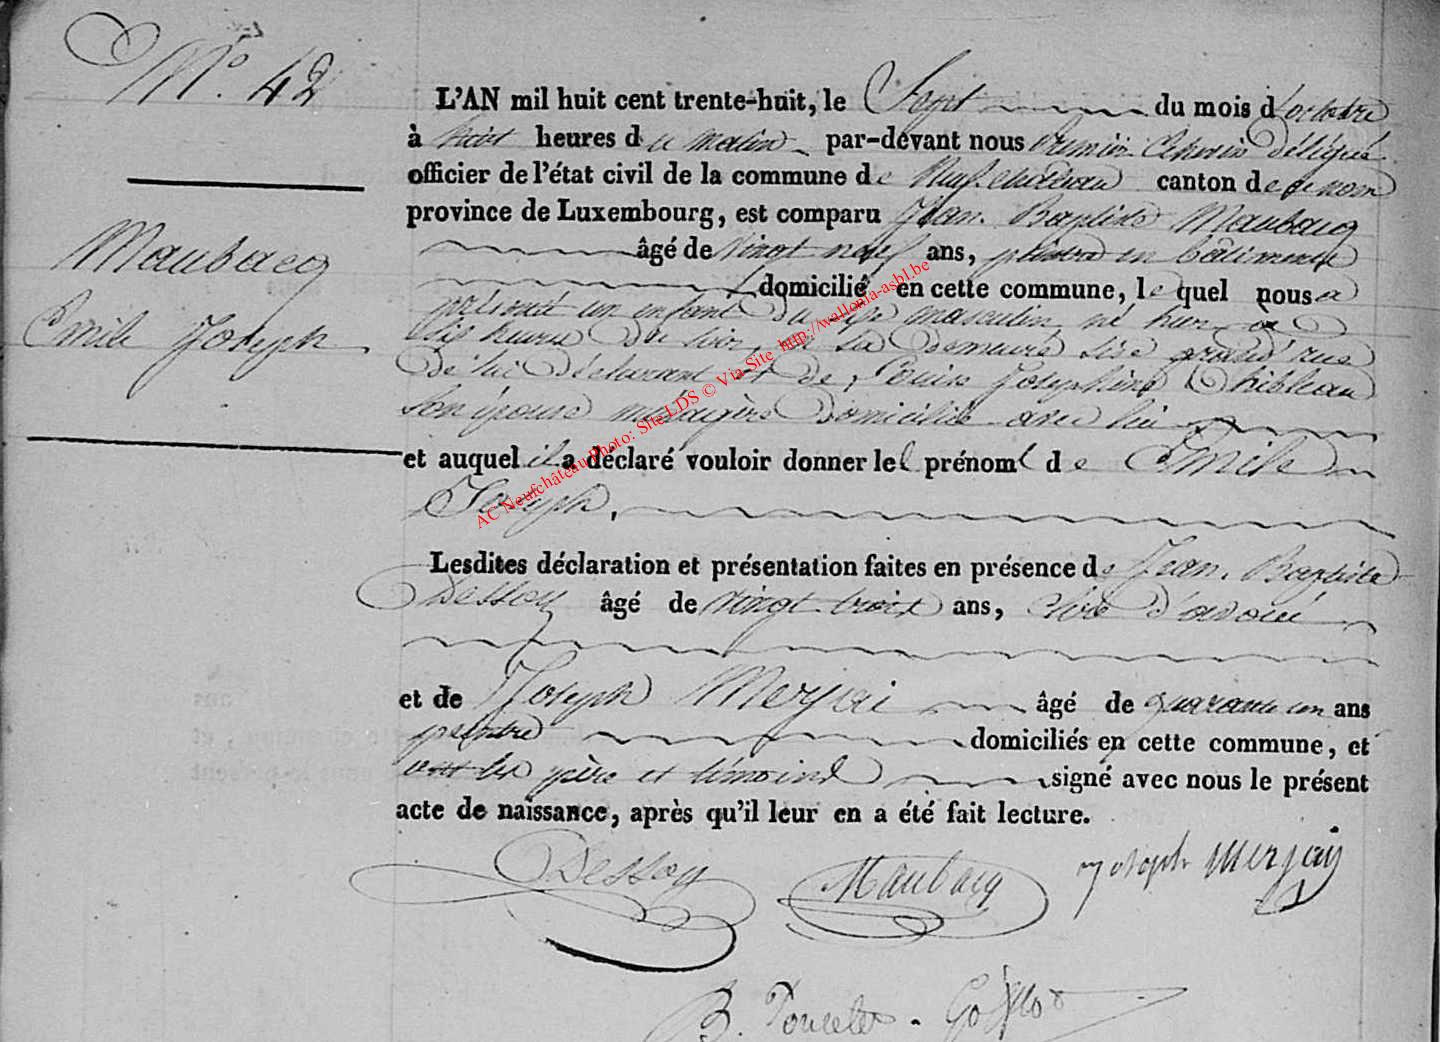 N° 42
Maubacq
Emile Joseph
L'AN mil huit cent trente-huit, le Sept du mois d'octobre
à huit heures du matin par-devant nous premier Echevin délégué
officier de l'état civil de la commune de Neufchâteau canton de ce nom
province de Luxembourg, est comparu Jean Baptiste Maubacq
âgé de vingt neuf ans, peintre en bâtiments
domicilié en cette commune, lequel nous a
présenté un enfant du sexe masculin, né hier à
six heures du soir, en sa demeure sise grand'rue
de lui déclarant et de Josephine
son épouse ménagère domiciliée avec lui
et auquel il a déclaré vouloir donner le prénom de Emile
Joseph.
Lesdites déclaration et présentation faites en présence de Jean Baptiste
Dessoy âgé de vingt trois ans, clerc d'avoué
et de Joseph Merjai âgé de quarante un ans
peintre domiciliés en cette commune, et
ont les père et témoins signé avec nous le présent
acte de naissance, après qu'il leur en a été fait lecture.
Dessoy Maubacq Joseph Merjay
B. Poncelet-
AC Neufchâteau Photo: Site LDS © Via Site http://wallonia-asbl.be